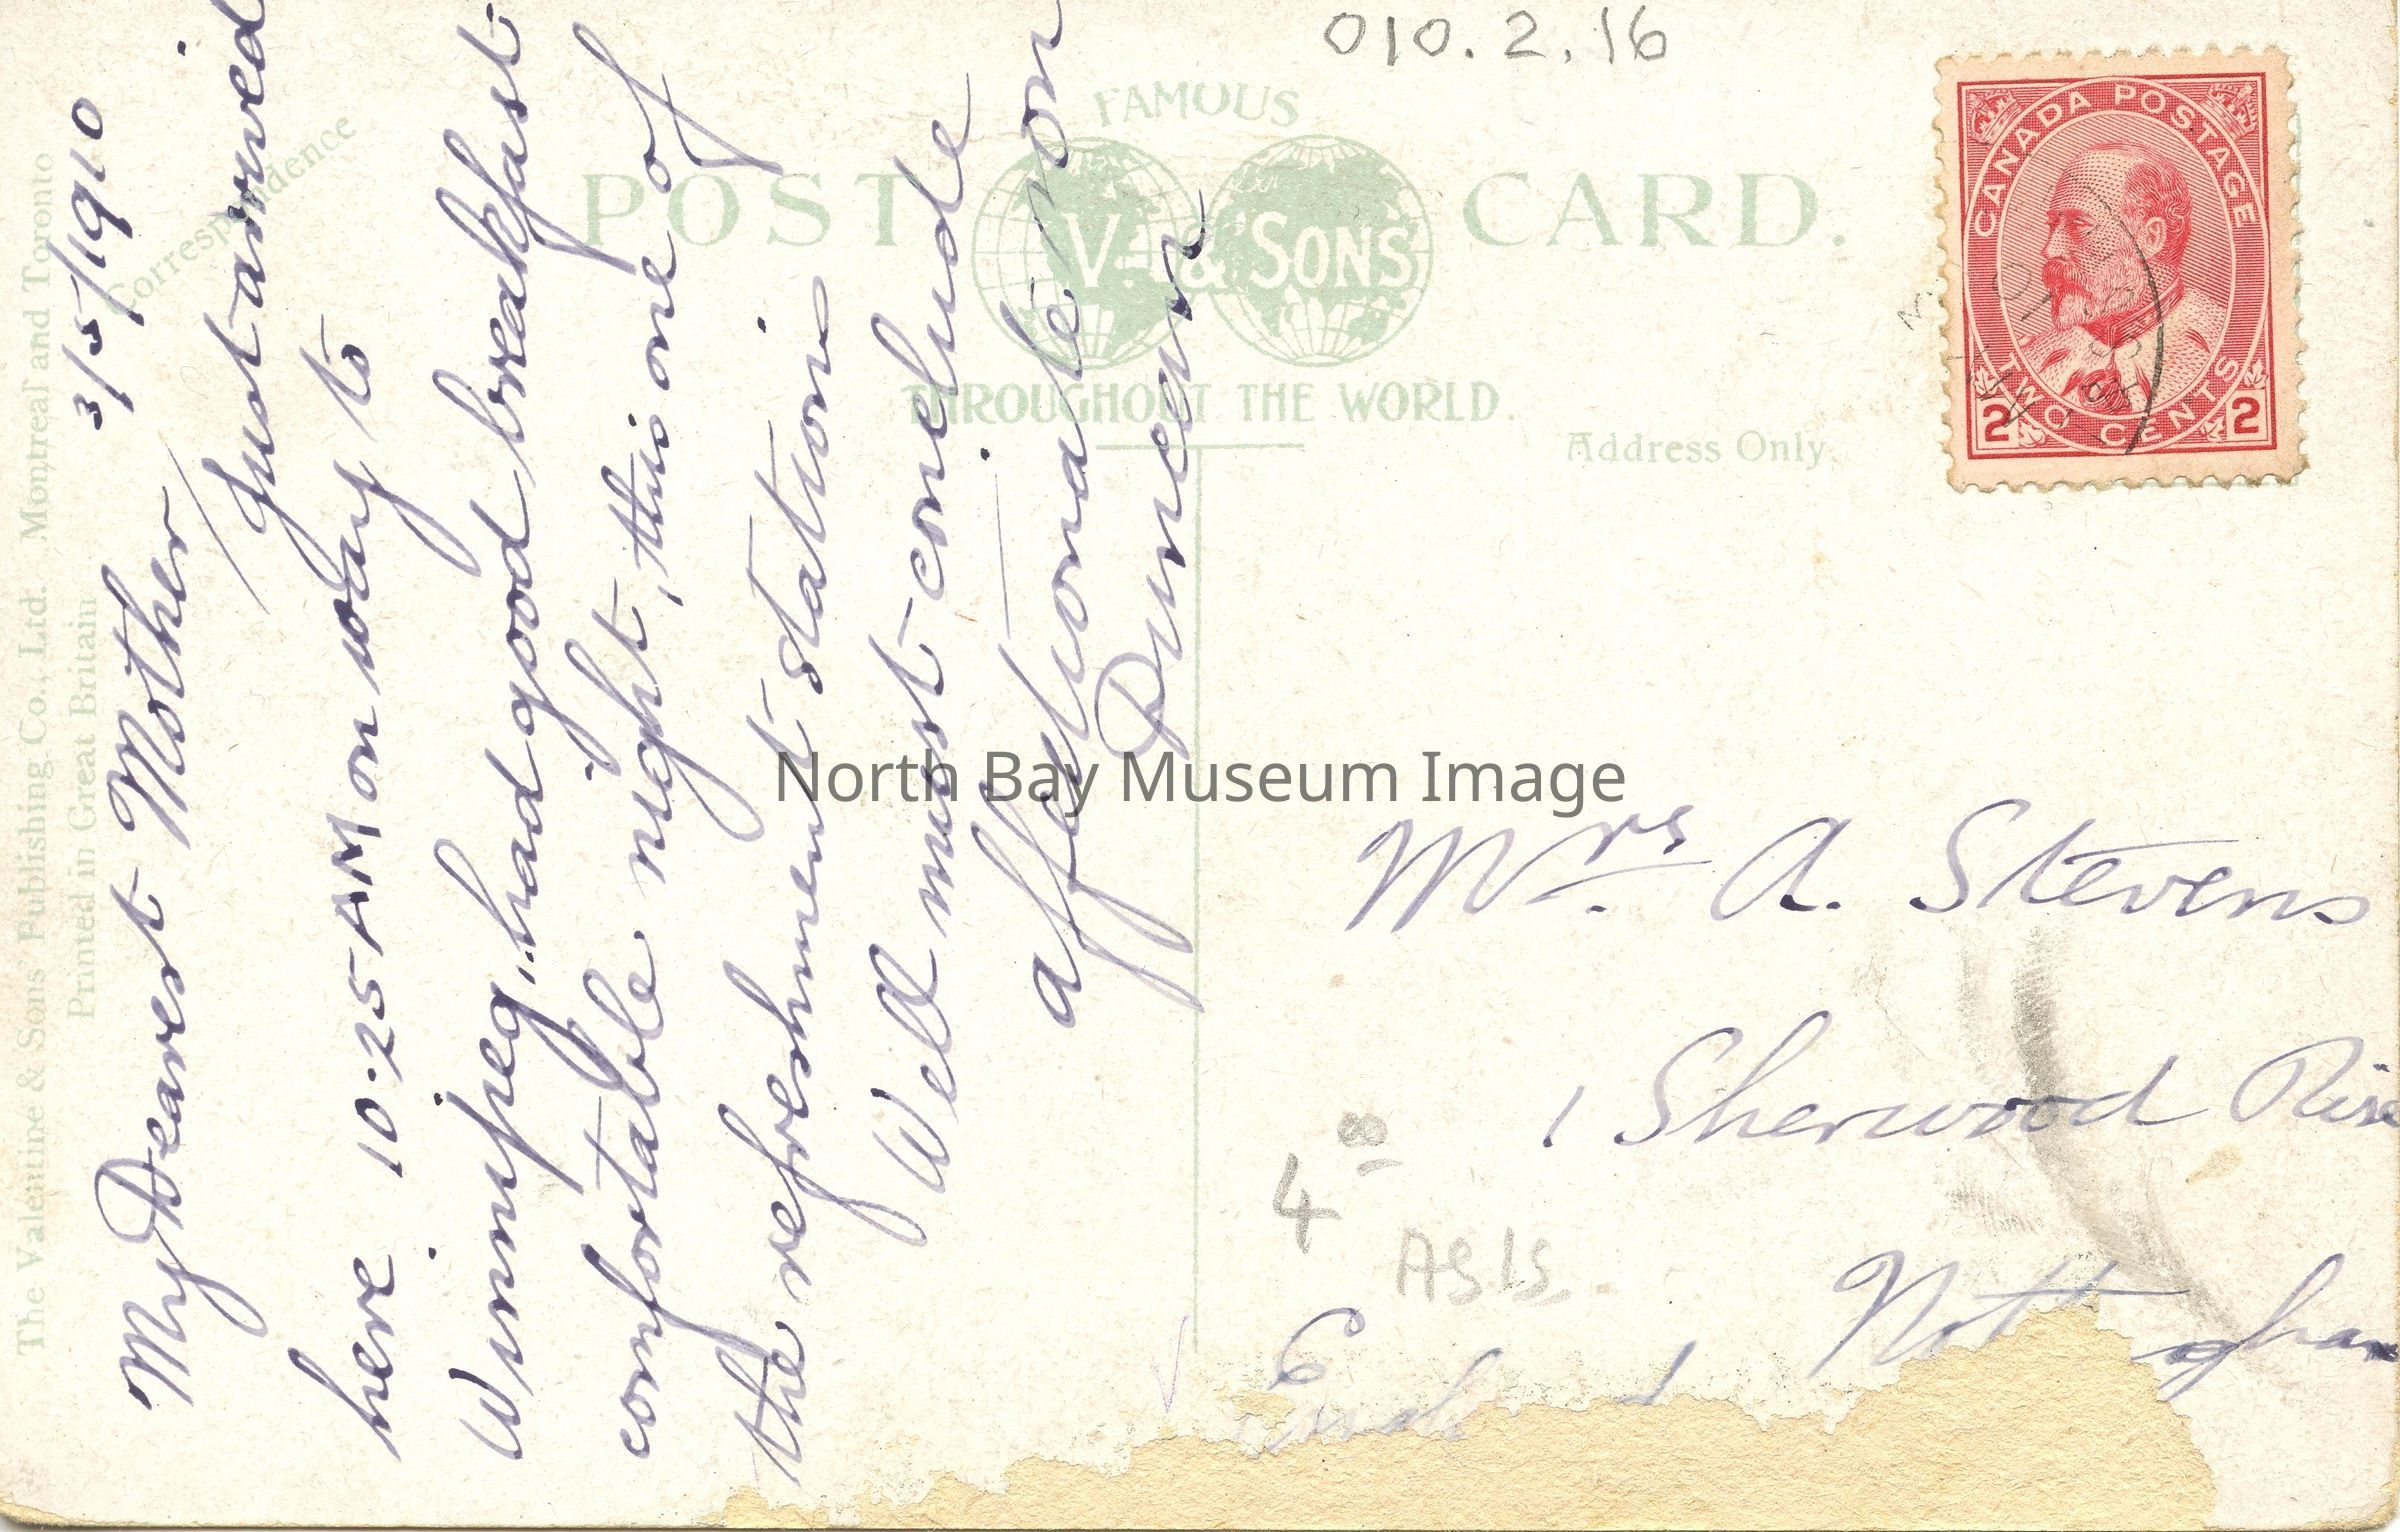 010.2.16
FAMOUS
POST CARD.
V. & SONS
THROUGHOUT THE WORLD.
Correspondence
Address Only.
The Valentine & Sons' Publishing Co., Ltd. Montreal and Toronto
Printed in Great Britain
CANADA POSTAGE
2 TWO CENTS 2
3/5/1910
My Dearest Mother
Just arrived
here 10.25 AM on way to
Winnipeg. had good breakfast
comfortable night, this one of
the refreshment stations
Well must conclude
affectionate son
Duncan
North Bay Museum Image
Mrs. A. Stevens
1 Sherwood Rise
Nott gham
4 00
AS IS